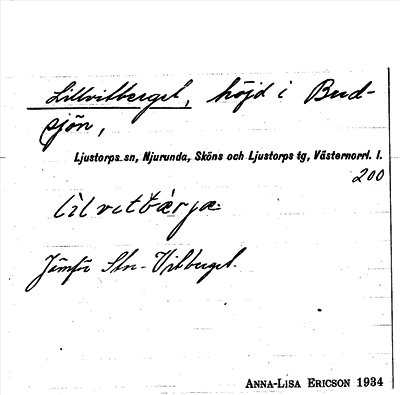 Lillvitberget, höjd i Bud-
sjön,
Ljustorps sn, Njurunda, Sköns och Ljustorps tg, Västernorrl. l.
200
lìl vìtbàrjæ
Jämför Stor-Vitberget.
ANNA-LISA ERICSON 1934